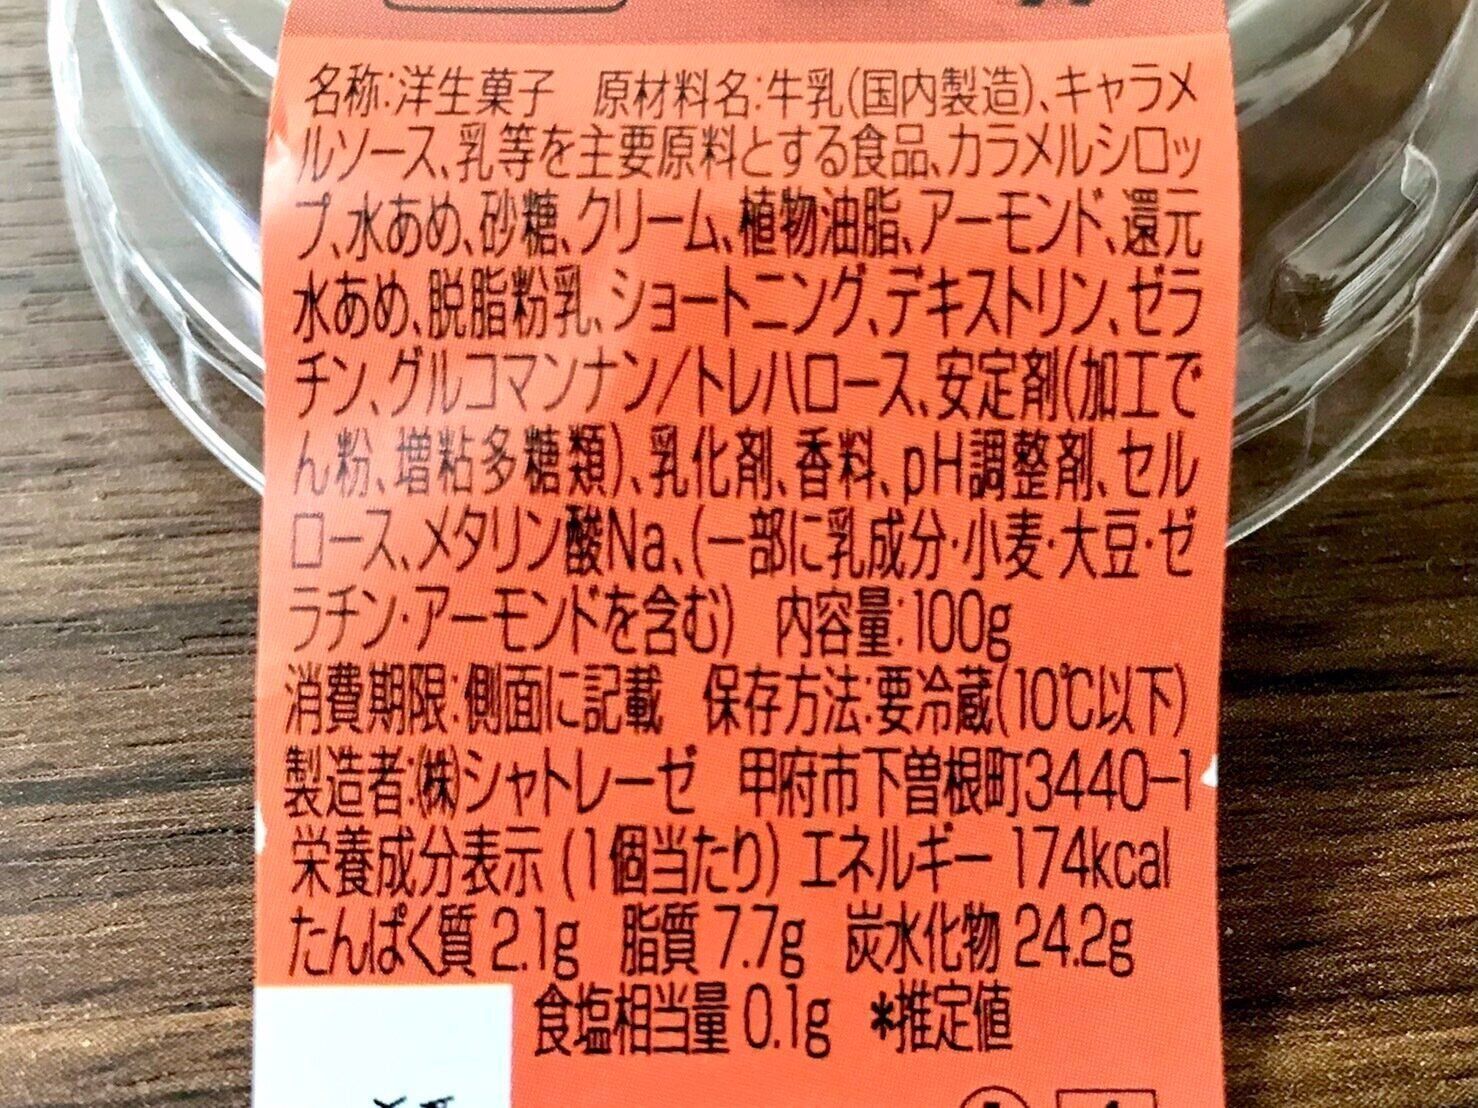 名称:洋生菓子　原材料名:牛乳(国内製造)、キャラメ
ルソース、乳等を主要原料とする食品、カラメルシロッ
プ、水あめ、砂糖、クリーム、植物油脂、アーモンド、還元
水あめ、脱脂粉乳、ショートニング、デキストリン、ゼラ
チン、グルコマンナン/トレハロース、安定剤(加工で
ん粉、増粘多糖類)、乳化剤、香料、pH調整剤、セル
ロース、メタリン酸Na、(一部に乳成分・小麦・大豆・ゼ
ラチン・アーモンドを含む)　内容量:100g
消費期限:側面に記載　保存方法:要冷蔵(10℃以下)
製造者:㈱シャトレーゼ　甲府市下曽根町3440-1
栄養成分表示 (1個当たり) エネルギー 174kcal
たんぱく質 2.1g　脂質 7.7g　炭水化物 24.2g
食塩相当量 0.1g　*推定値